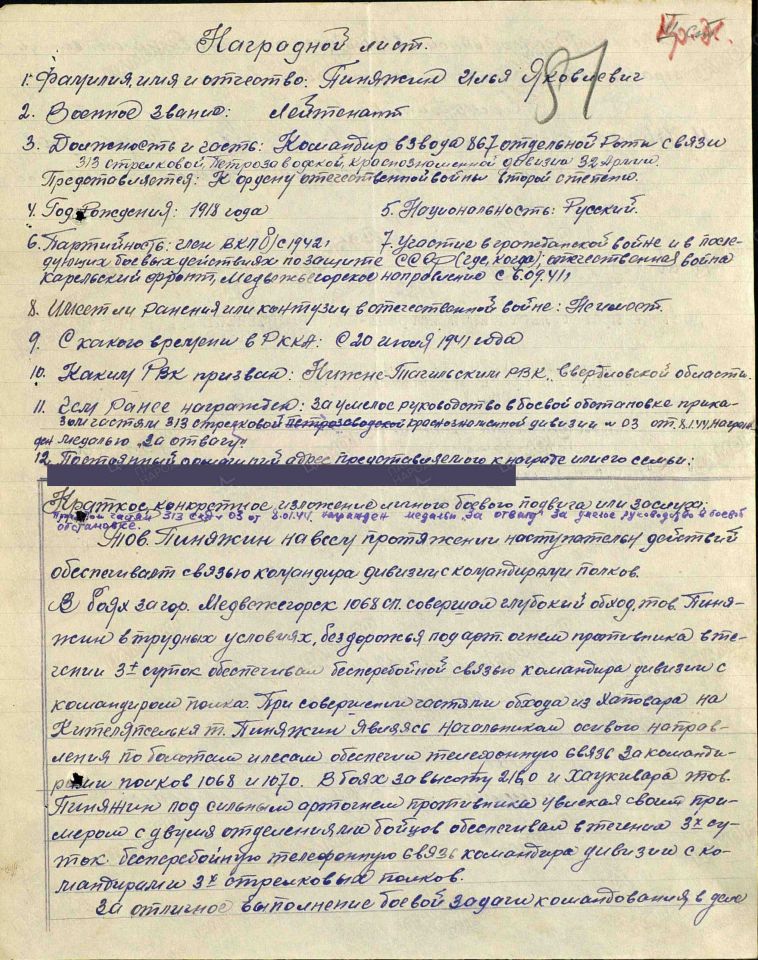 Наградной лист.
87
1. Фамилия, имя и отчество: Пиняжин Илья Яковлевич
2. Военное звание: Лейтенант
3. Должность и часть: Командир взвода 867 отдельной Роты связи
313 стрелковой Петрозаводской, краснознаменной дивизии 32 Армии.
Представляется: К ордену отечественной войны второй степени.
4. Год Рождения: 1918 года 5. Национальность: Русский.
6. Партийность: член ВКП(б) с 1942г. 7. Участие в гражданской войне и в после-
дующих боевых действиях по защите СССР (где, когда): отечественная война
Карельский фронт, Медвежьегорское направление с 6.09.41г
8. Имеет ли ранения или контузии в отечественной войне: Не имеет.
9. С какого времени в РККА: С 20 июля 1941 года
10. Каким РВК призван: Нижне-Тагильским РВК, Свердловской области.
11. Чем Ранее награжден: За умелое руководство в боевой обстановке прика-
зом частям 313 стрелковой Петрозаводской краснознаменной дивизии № 03 от 8.1.44, награж-
ден медалью „За отвагу"
12. Постоянный домашний адрес представляемого к награде или его семьи:
Краткое, конкретное изложение личного боевого подвига или заслуг:
Приказом частям 313 сд № 03 от 8.01.44 награжден медалью „За отвагу" за умелое руководство в боевой
обстановке.
Тов. Пиняжин на всем протяжении наступательн действий
обеспечивает связью командира дивизии с командирами полков.
В боях за гор. Медвежегорск 1068 сп. совершал глубокий обход, тов. Пиня-
жин в трудных условиях, бездорожья под арт. огнем противника в те-
чении 3х суток обеспечивал бесперебойной связью командира дивизии с
командиром полка. При совершении частями обхода из Хаповара на
Кителяпселькя т. Пиняжин Являясь начальником осевого направ-
ления по болотам и лесам обеспечил телефонную связь за команди-
рами полков 1068 и 1070. В боях за высоту 216,0 и Хаукивара тов.
Пиняжин под сильным артогнем противника увлекая своим при-
мером с двумя отделениями бойцов обеспечивал в течении 3х су-
ток бесперебойную телефонную связь командира дивизии с ко-
мандирами 3х стрелковых полков.
За отличное выполнение боевой задачи командования в деле